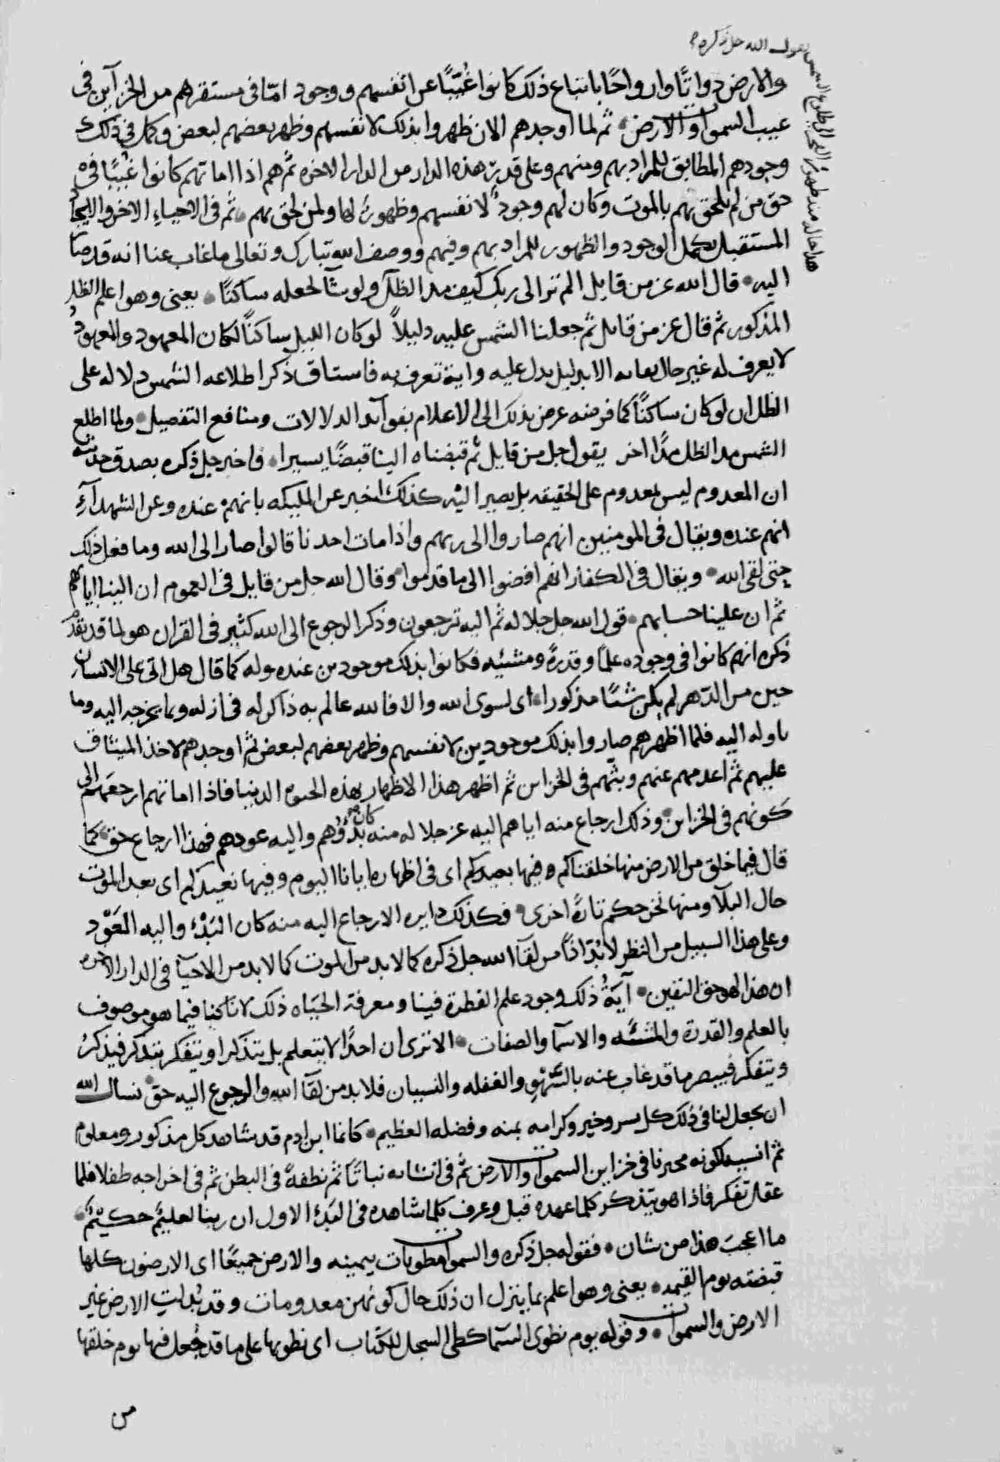 يقول الله جل ذكره
والارض ذواتًا وارواحًا باتباع ذلك كانوا غُيّبًا عن انفسهم ووجود امّا في مستقرهم من الخزآين في
غيب السموات والارض ثم لما اوجدهم الان ظهروا بذلك لانفسهم وظهر بعضهم لبعض وكل في ذلك
وجودهم المطابق للمراد بهم ومنهم وعلى قدر هذه الدار من الدار الاخرة ثم هم اذا اماتهم كانوا غُيّبًا في
حق من لم يلحق بهم بالموت وكان لهم وجودٌ لانفسهم وظهورٌ لها ولمن لحق بهم ثم في الاحياء الاخر والايجاد
المستقبل يكمل الوجود والظهور للمراد بهم وفيهم ووصف الله تبارك وتعالى ما غاب عنا انه قد صار
اليه قال الله عز من قايل الم تر الى ربك كيف مد الظل ولو شآ لجعله ساكنًا يعني وهو اعلم الظل
المذكور ثم قال عز من قايل ثم جعلنا الشمس عليه دليلًا لو كان الليل ساكنًا لكان المعهود والمعهود
لا يعرف له غير حال بعابه الا بدليل يدل عليه واية تعرف به فاستاق ذكر اطلاعه الشمس دلالة على
الظل ان لو كان ساكنًا كما فرضه عرض بذلك الى الاعلام بفوآيد الدلالات ومنافع التفصيل ولما اطلع
الشمس مد الظل مدًا اخر يقول جل من قايل ثم قبضناه الينا قبضًا يسيرا فاخبر جل ذكره بصدق حديثه
ان المعدوم ليس بمعدوم على الحقيقه بل يصير اليه كذلك اخبر عن الملىكه بانهم عنده وعن الشهدآءِ
انهم عنده ويقال في المومنين انهم صاروا الى ربهم واذا مات احدنا قالوا صار الى الله وما فعل ذلك
حتى لقى الله ويقال في الكفار انهم افضوا الى ما قدموا وقال الله جل من قايل في العموم ان الينا ايابهم
ثم ان علينا حسابهم قول الله جل جلاله ثم اليه ترجعون وذكر الرجوع الى الله كثير في القران هو لما قد تقدم
ذكره انهم كانوا في وجوده علمًا وقدرةً ومشئيه فكانوا بذلك موجودين عنده وله كما قال هل اتى على الانسان
حين من الدهر لم يكن شيًا مذكورا اى لسوى الله والا فالله عالم به ذاكر له في ازله وبما يخرجه اليه وما
ياوله اليه فلما اظهرهم صاروا بذلك موجودين لانفسهم وظهر بعضهم لبعض ثم اوجدهم لاخذ الميثاق
عليهم ثم اعدمهم عنهم وبثهم في الخزاين ثم اظهر هذا الاظهار بهذه الحيوه الدنيا فاذا اماتهم ارجعهم الى
كونهم في الخزاين وذلك ارجاع منه اياهم اليه عز جلاله منه كان بدؤهم واليه عودهم فهذا ارجاع حق كما
قال فيما خلق من الارض منها خلقناكم وفيها نعيدكم اى في اظهاره ايانا اليوم وفيها نعيدكم اى بعد الموت
حال البلآ ومنها نخرجكم تارةً اخرى فكذلك دايره الارجاع اليه منه كان البَدْءُ واليه العَوْد
وعلى هذا السبيل من النظر لابُدّ اذًا من لقآ الله جل ذكره كما لابد من الموت كما لابد من الاحيآ في الدار الاخره
ان هذا لهو حق اليقين آيةُ ذلك وجود علم الفطرة فينا ومعرفة الحياه ذلك لانا كنا فيما هو موصوف
بالعلم والقدرة والمشئه والاسمآ والصفات الا ترى ان احدًا لا يتعلم بل يتذكر او يتفكر يتذكر فيذكر
ويتفكر فيبصر ما قد غاب عنه بالسَّهْوِ والغفله والنسيان فلا بد من لقآ الله والرجوع اليه حق نسال الله
ان يجعل لنا في ذلك كل يسر وخير وكرامه بمنه وفضله العظيم كانما ابن ادم قد شاهد كل مذكور ومعلوم
ثم انسيه لكونه في خزاين السموات والارض ثم في انباته نباتًا ثم نطفةً في البطن ثم في اخراجه طفلا فلما
عقل تفكر فاذا هو يتذكر كلما عهده قبل وعرف كلما شاهده في البَدْءِ الاول ان ربنا لعليمٌ حكيمٌ
ما اعجب هذا من شان فقوله جل ذكره والسموات مطويات بيمينه والارض جميعًا اى الارضون كلها
قبضته يوم القيمه يعني وهو اعلم بما ينزل ان ذلك حال كونهن معدومات وقد بُدلتِ الارض غير
الارض والسموات وقوله يوم نطوى السمآ كطى السجل للكتاب اى نطويها على ما قد جُعل فيها يوم خلقها
من